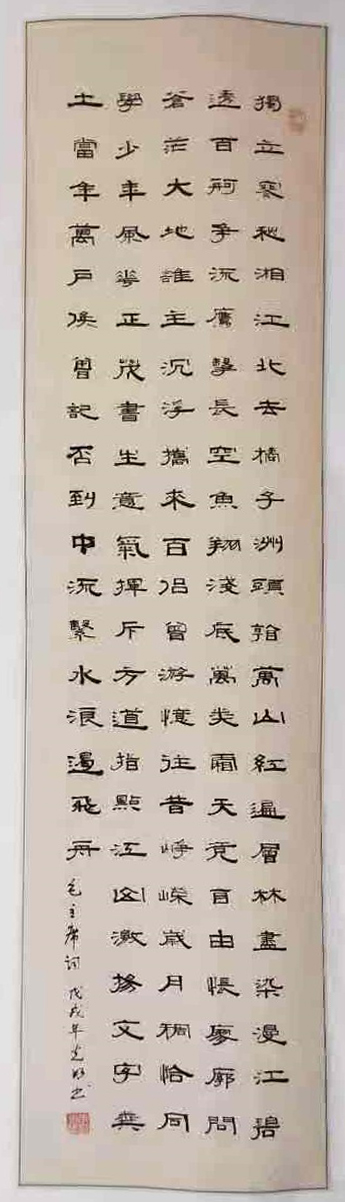 獨立寒秋湘江北去橘子洲頭看萬山紅遍層林盡染漫江碧
透百舸争流鷹擊長空魚翔淺底萬类霜天竞自由悵廖廓問
蒼茫大地誰主沉浮攜來百侣曾游憶往昔崢嶸歲月稠恰同
學少年風華正茂書生意氣揮斥方遒指點江山激揚文字糞
土當年萬户侯曾記否到中流擊水浪遏飛舟
毛主席词 戊戌年 书